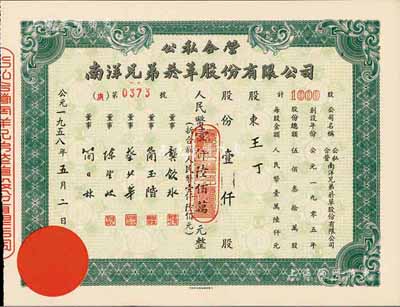 公私合營
南洋兄弟菸草股份有限公司
(廣)第0373號
計1000股
公司名稱 公私合營南洋兄弟菸草股份有限公司
創設年份 公元一九〇五年
股份總額 伍佰叁拾萬股
每股金額 人民幣壹萬陸仟元
股東 王丁
股份 壹仟股
人民幣壹仟陸佰萬元整
(折合新人民幣壹仟陸佰元)
董事
董事 簡玉階
董事
董事
董事 簡日林
公元一九五八年五月二日